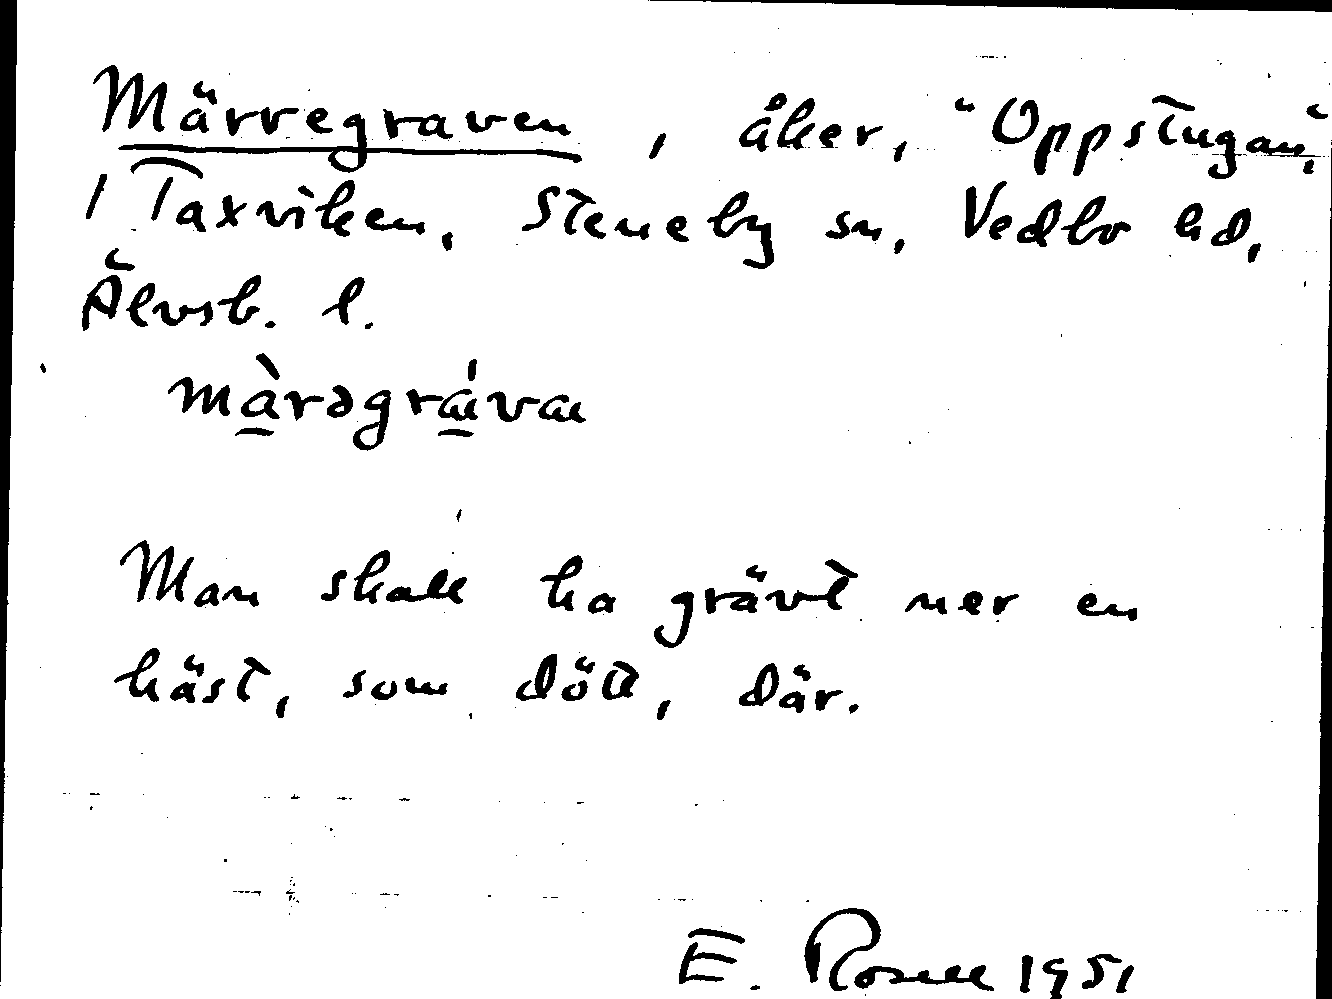 Märregraven, åker, "Oppstugan",
1 Taxviken, Steneby sn, Vedbo hd,
Älvsb. l.
màrəgrǽvæ
Man skall ha grävt ner en
häst, som dött, där.
E. Rosell 1951